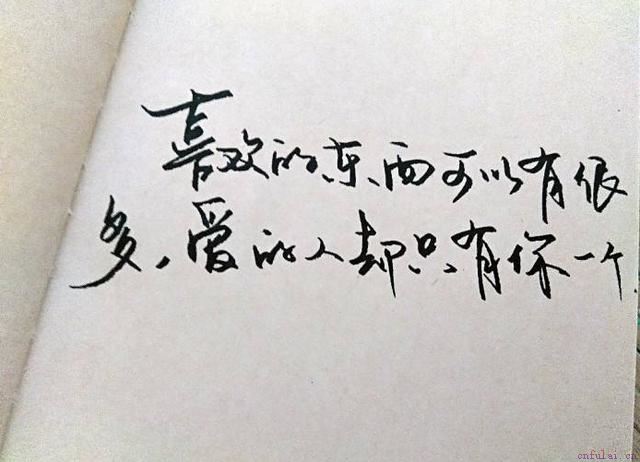 喜欢的东西可以有很
多，爱的人却只有你一个.
cnfulai.cn